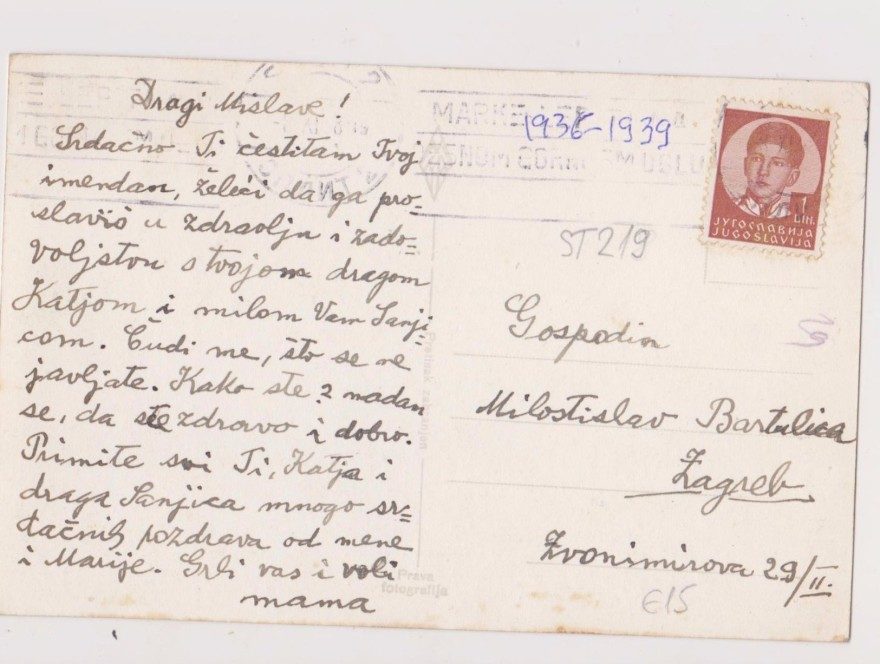 Dragi Mislave!
Srdačno Ti čestitam Tvoj
imendan, želeći da ga pro=
slaviš u zdravlju i zado=
voljstvu s tvojom dragom
Katjom i milom Vam Sanji=
com. Čudi me, što se ne
javljate. Kako ste? nadam
se, da ste zdravo i dobro.
Primite svi Ti, Katja i
draga Sanjica mnogo sr=
dačnih pozdrava od mene
i Marije. Grli vas i voli
mama
1936-1939
ST219
DIN.
ЈУГОСЛАВИЈА
JUGOSLAVIJA
Gospodin
Milostislav Bartulica
Zagreb
Zvonimirova 29/II.
€15
Prava
fotografija